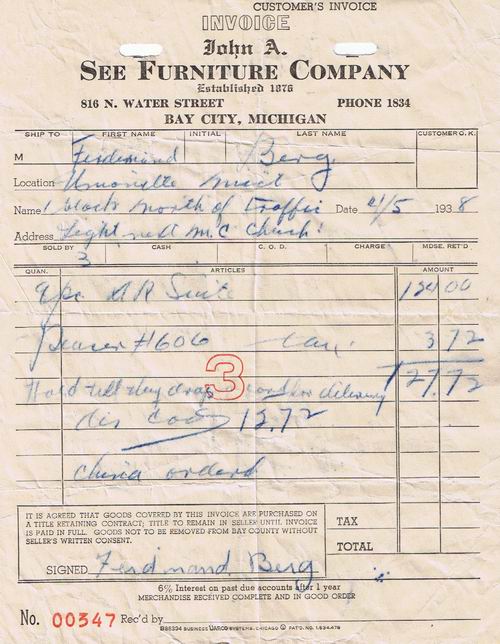 CUSTOMER'S INVOICE
INVOICE
John A.
SEE FURNITURE COMPANY
Established 1876
816 N. WATER STREET PHONE 1834
BAY CITY, MICHIGAN
SHIP TO FIRST NAME INITIAL LAST NAME CUSTOMER O.K.
M Ferdinand Berg
Location Unionville Mich
Name 1 block north of Traffic Date 4/5 1938
Address Light next M.C. Church
SOLD BY CASH C.O.D. CHARGE MDSE. RET'D
3
QUAN. ARTICLES AMOUNT
9 pc D R Suite 124 00
#606 tax 3 72
3
Hold till they drop card for delivery 127.72
dis 12.72
china ordered
IT IS AGREED THAT GOODS COVERED BY THIS INVOICE ARE PURCHASED ON
A TITLE RETAINING CONTRACT; TITLE TO REMAIN IN SELLER UNTIL INVOICE
IS PAID IN FULL. GOODS NOT TO BE REMOVED FROM BAY COUNTY WITHOUT
SELLER'S WRITTEN CONSENT.
TAX
TOTAL
SIGNED Ferdinand Berg
6% Interest on past due accounts after 1 year
MERCHANDISE RECEIVED COMPLETE AND IN GOOD ORDER
No. 00347 Rec'd by
B86334 BUSINESS UARCO SYSTEMS, CHICAGO PAT'D. NO. 1.634.478